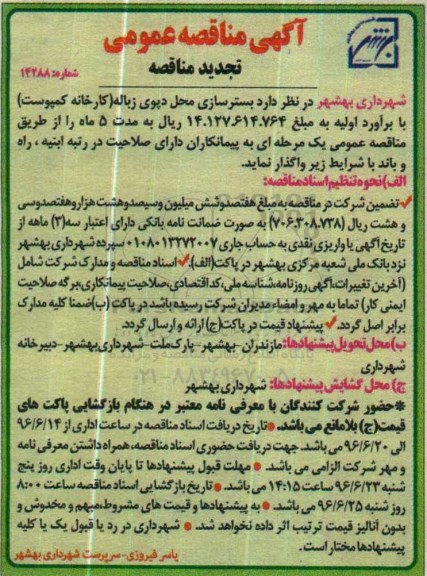 آگهی مناقصه عمومی
تجدید مناقصه
شماره: ۱۴۲۸۸
شهرداری بهشهر در نظر دارد بسترسازی محل دپوی زباله(کارخانه کمپوست)
با برآورد اولیه به مبلغ ۱۴.۱۲۷.۶۱۴.۷۶۴ ریال به مدت ۵ ماه را از طریق
مناقصه عمومی یک مرحله ای به پیمانکاران دارای صلاحیت در رتبه ابنیه ، راه
و باند با شرایط زیر واگذار نماید.
الف)نحوه تنظیم اسناد مناقصه:
تضمین شرکت در مناقصه به مبلغ هفتصدوشش میلیون وسیصدوهشت هزاروهفتصدوسی
و هشت ریال (۷۰۶.۳۰۸.۷۳۸) به صورت ضمانت نامه بانکی دارای اعتبار سه(۳) ماهه از
تاریخ آگهی یا واریزی نقدی به حساب جاری ۰۱۰۸۰۱۳۲۷۲۰۰۷ سپرده شهرداری بهشهر
نزد بانک ملی شعبه مرکزی بهشهر در پاکت(الف). اسناد مناقصه و مدارک شرکت شامل
(آخرین تغییرات،آگهی روزنامه،شناسه ملی،کد اقتصادی،صلاحیت پیمانکاری،برگه صلاحیت
ایمنی کار) تماما به مهر و امضاء مدیران شرکت رسیده باشد در پاکت (ب)ضمنا کلیه مدارک
برابر اصل گردد. پیشنهاد قیمت در پاکت(ج) ارائه و ارسال گردد.
ب)محل تحویل پیشنهادها: مازندران-بهشهر-پارک ملت-شهرداری بهشهر-دبیرخانه
شهرداری
ج) محل گشایش پیشنهادها: شهرداری بهشهر
*حضور شرکت کنندگان با معرفی نامه معتبر در هنگام بازگشایی پاکت های
قیمت(ج) بلامانع می باشد. تاریخ دریافت اسناد مناقصه در ساعت اداری از ۹۶/۶/۱۴
الی ۹۶/۶/۲۰ می باشد. جهت دریافت حضوری اسناد مناقصه،همراه داشتن معرفی نامه
و مهر شرکت الزامی می باشد. مهلت قبول پیشنهادها تا پایان وقت اداری روز پنج
شنبه ۹۶/۶/۲۳ ساعت ۱۴:۱۵ می باشد. تاریخ بازگشایی اسناد مناقصه ساعت ۸:۰۰
روز شنبه ۹۶/۶/۲۵ می باشد. به پیشنهادها و قیمت های مشروط،مبهم و مخدوش و
بدون آنالیز قیمت ترتیب اثر داده نخواهد شد. شهرداری در رد یا قبول یک یا کلیه
پیشنهادها مختار است.
یاسر فیروزی-سرپرست شهرداری بهشهر